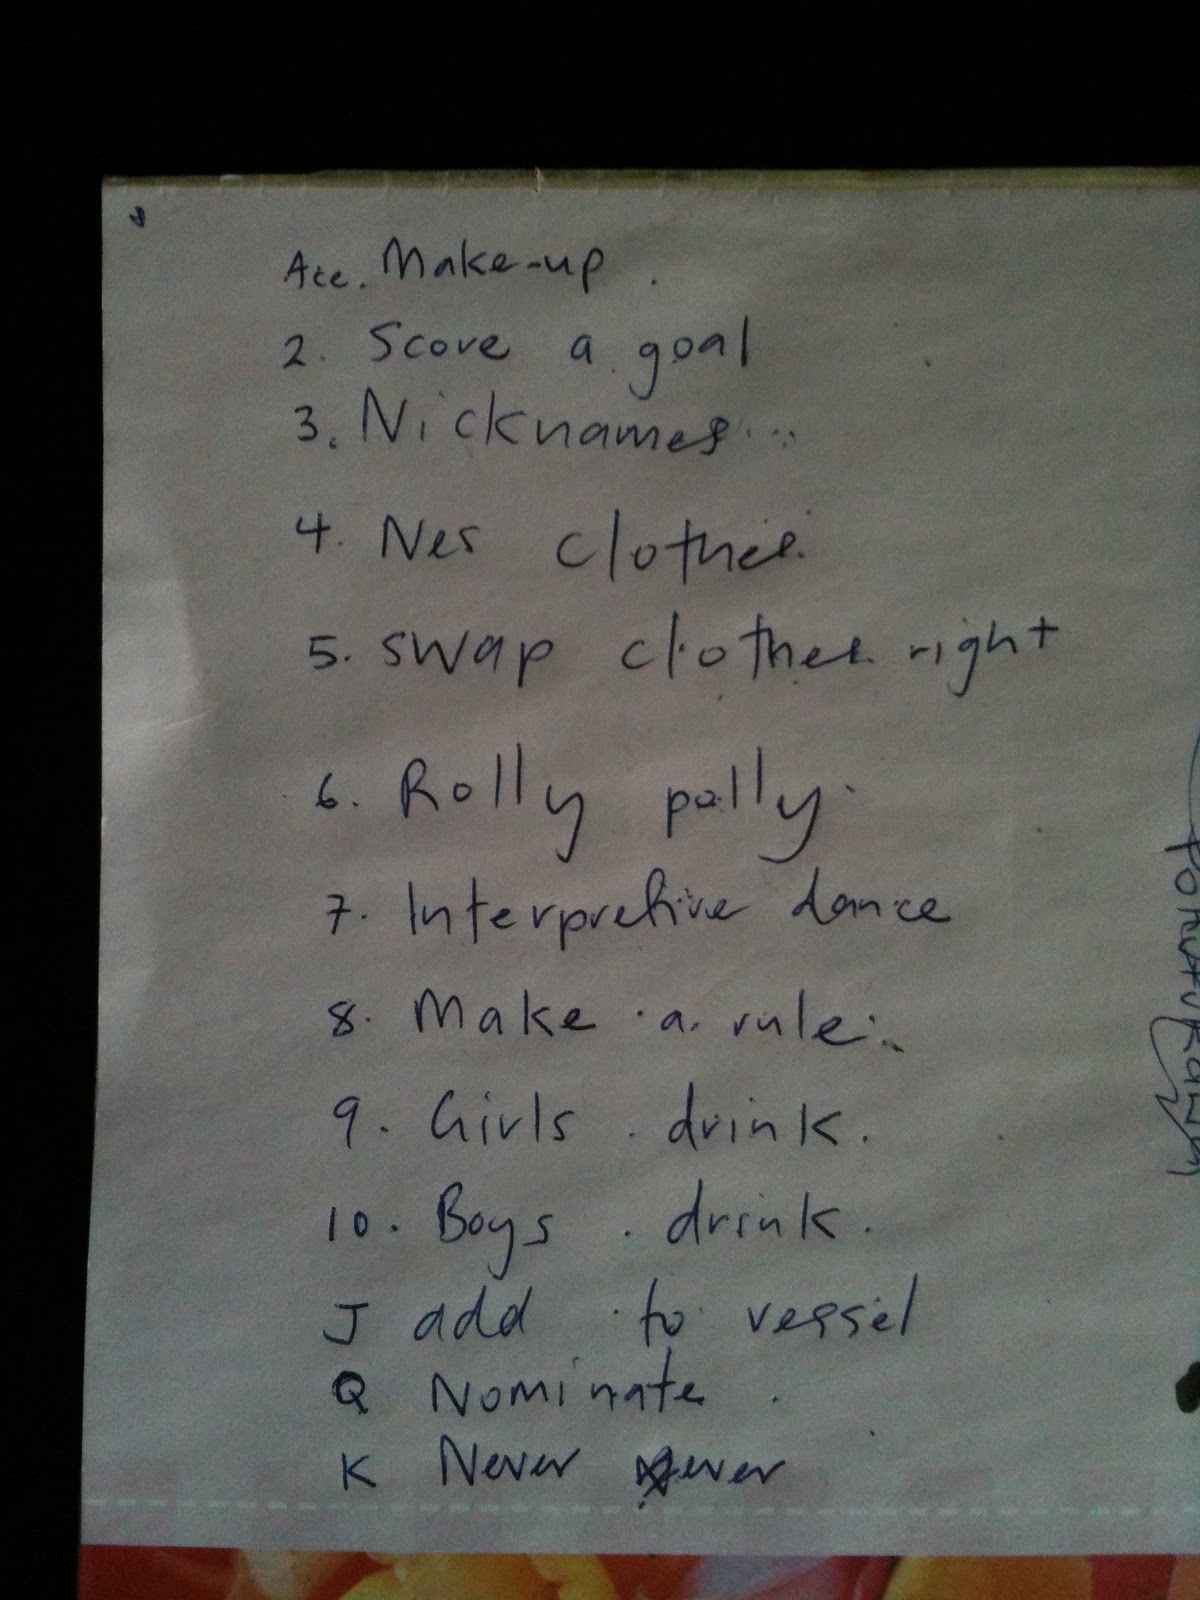 Ace. Make-up.
2. Score a goal
3. Nicknames...
4. Nes clothes.
5. swap clothes right
6. Rolly polly.
7. Interpretive dance
8. Make a rule.
9. Girls drink.
10. Boys drink.
J add to vessel
Q Nominate.
K Never ever